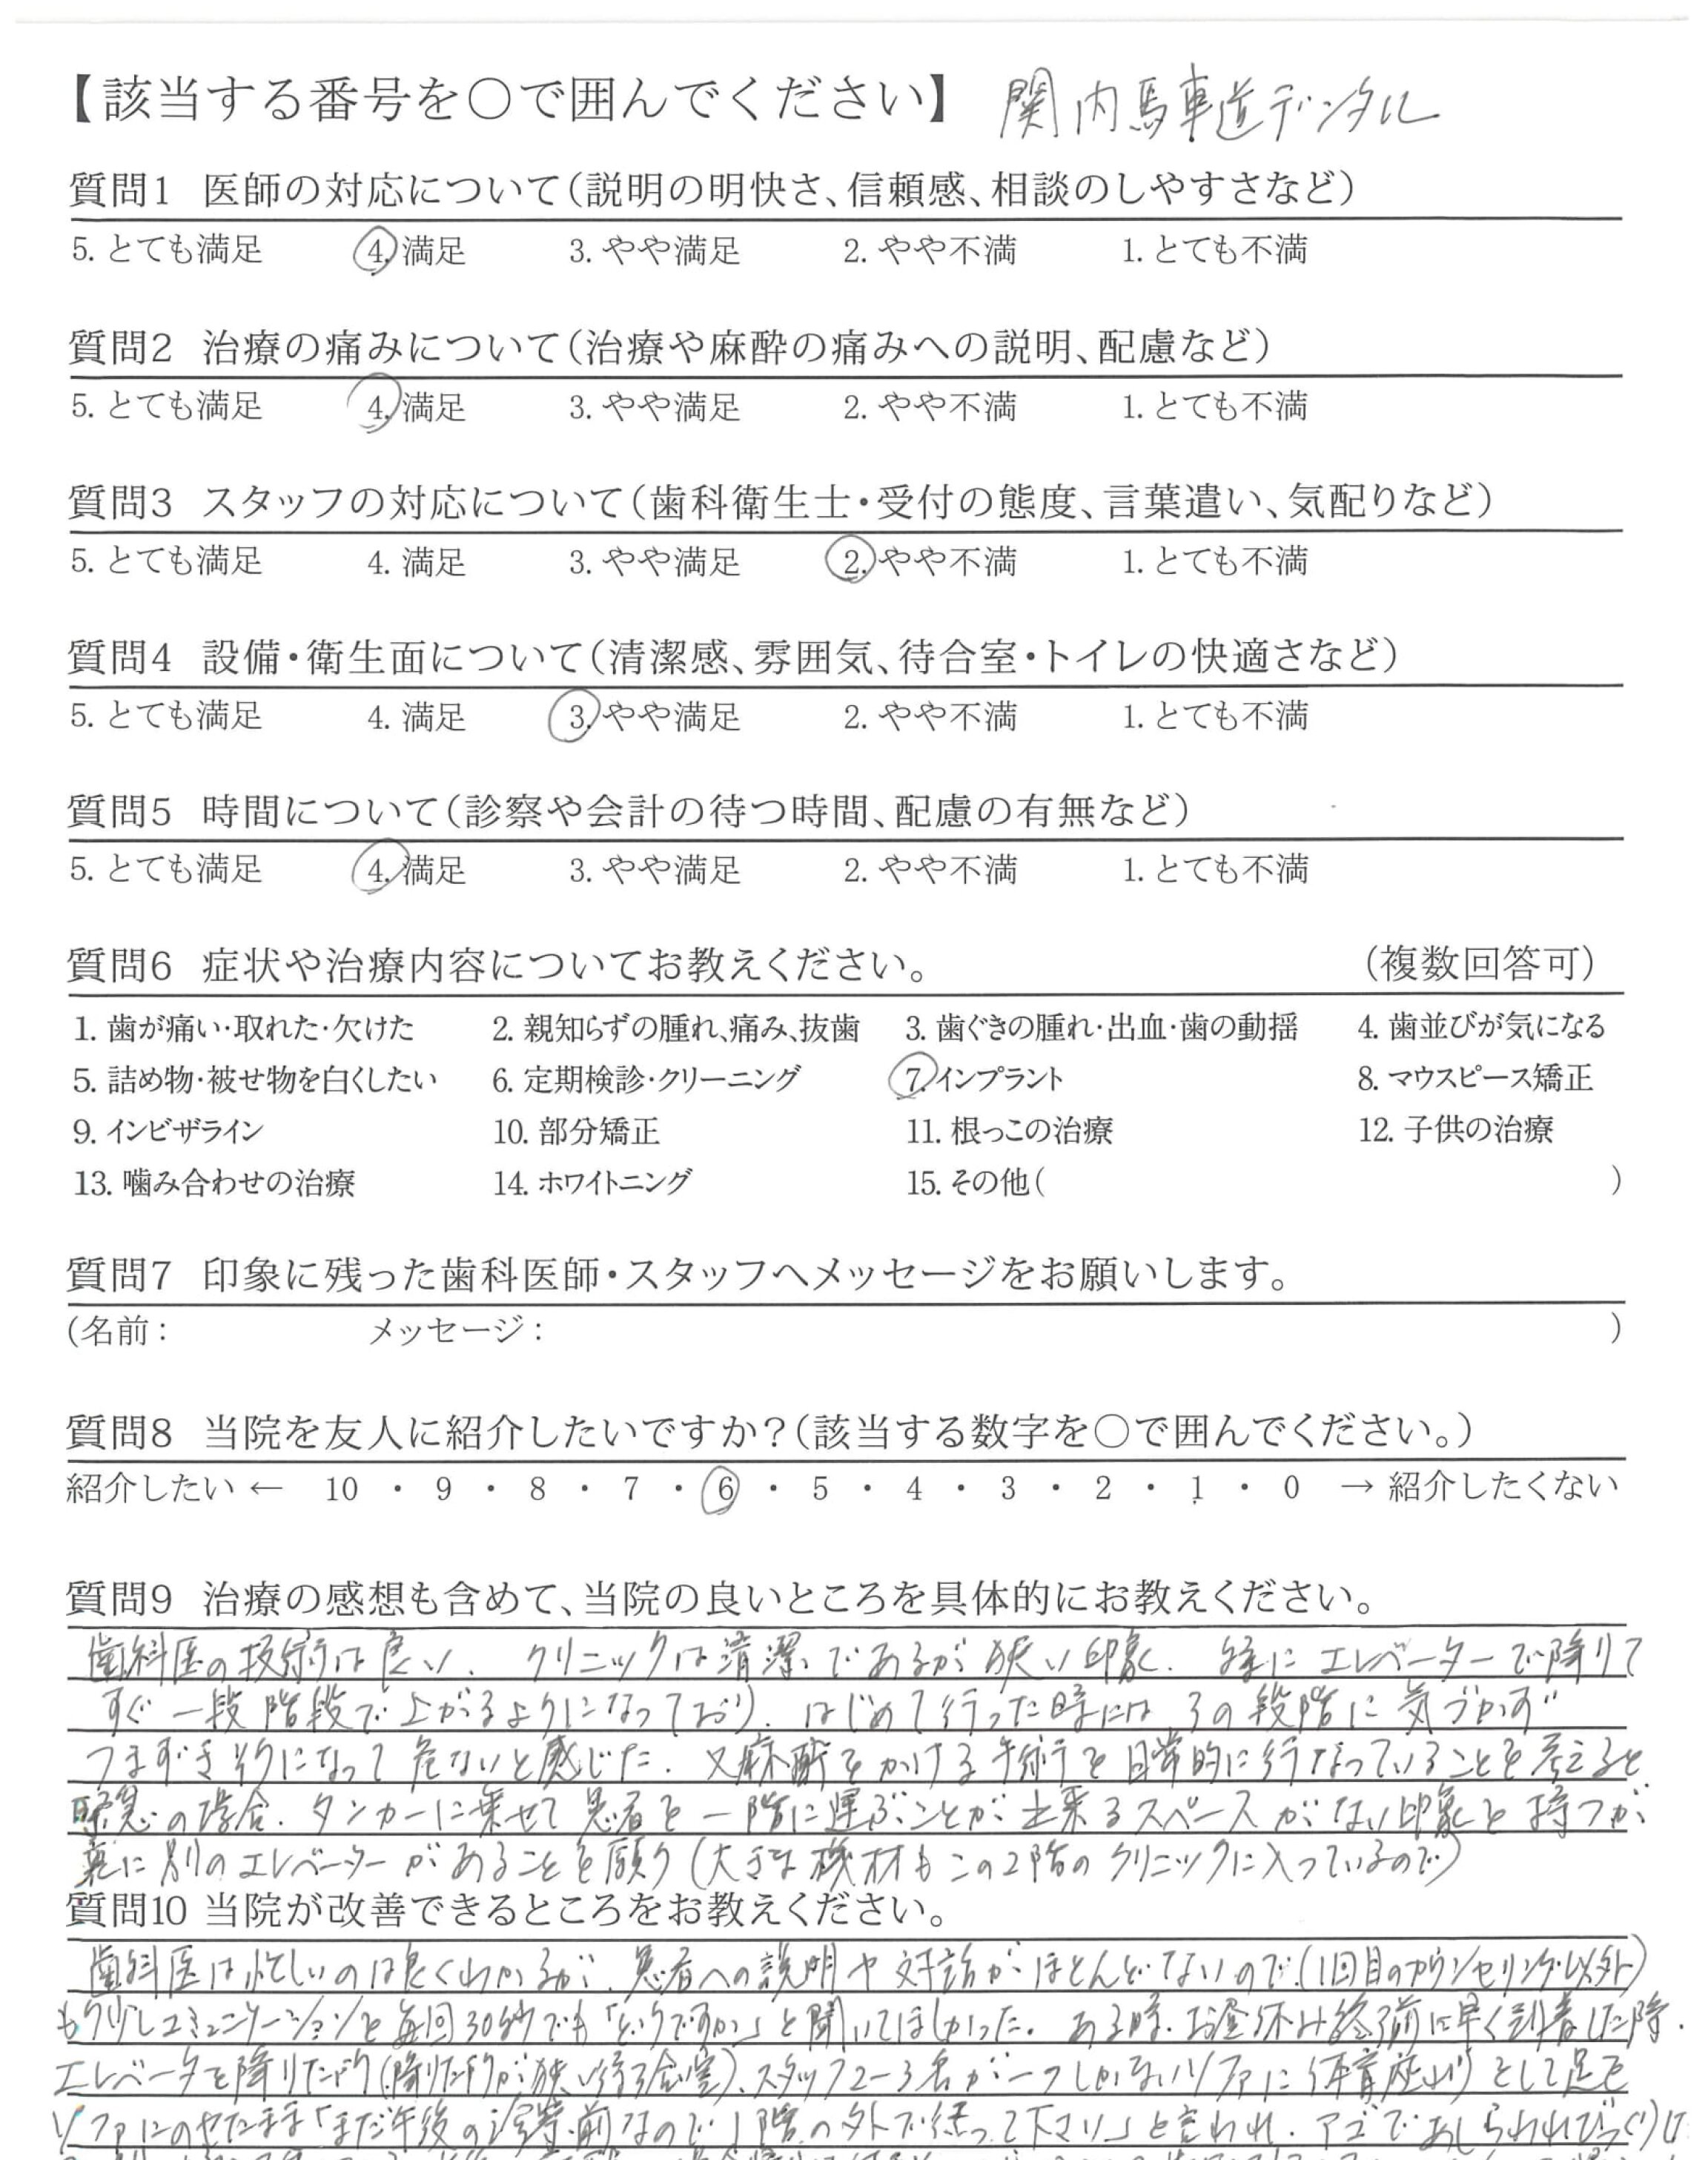 【該当する番号を○で囲んでください】 関内馬車道デンタル
質問1 医師の対応について(説明の明快さ、信頼感、相談のしやすさなど)
5. とても満足 4. 満足 3. やや満足 2. やや不満 1. とても不満
質問2 治療の痛みについて(治療や麻酔の痛みへの説明、配慮など)
5. とても満足 4. 満足 3. やや満足 2. やや不満 1. とても不満
質問3 スタッフの対応について(歯科衛生士・受付の態度、言葉遣い、気配りなど)
5. とても満足 4. 満足 3. やや満足 2. やや不満 1. とても不満
質問4 設備・衛生面について(清潔感、雰囲気、待合室・トイレの快適さなど)
5. とても満足 4. 満足 3. やや満足 2. やや不満 1. とても不満
質問5 時間について(診察や会計の待つ時間、配慮の有無など)
5. とても満足 4. 満足 3. やや満足 2. やや不満 1. とても不満
質問6 症状や治療内容についてお教えください。 (複数回答可)
1. 歯が痛い・取れた・欠けた 2. 親知らずの腫れ、痛み、抜歯 3. 歯ぐきの腫れ・出血・歯の動揺 4. 歯並びが気になる
5. 詰め物・被せ物を白くしたい 6. 定期検診・クリーニング 7. インプラント 8. マウスピース矯正
9. インビザライン 10. 部分矯正 11. 根っこの治療 12. 子供の治療
13. 噛み合わせの治療 14. ホワイトニング 15. その他( )
質問7 印象に残った歯科医師・スタッフへメッセージをお願いします。
(名前: メッセージ: )
質問8 当院を友人に紹介したいですか?(該当する数字を○で囲んでください。)
紹介したい ← 10 ・ 9 ・ 8 ・ 7 ・ 6 ・ 5 ・ 4 ・ 3 ・ 2 ・ 1 ・ 0 → 紹介したくない
質問9 治療の感想も含めて、当院の良いところを具体的にお教えください。
歯科医の技術は良い. クリニックは清潔であるが狭い印象. 特にエレベーターで降りて
すぐ一段階段で上がるようになっており、はじめて行った時にはその段階に気づかず
つまずきそうになって危ないと感じた. 又麻酔をかける手術を日常的に行なっていることを考えると
緊急の場合. タンカーに乗せて患者を一階に運ぶことが出来るスペースがない印象を持つが
裏に別のエレベーターがあることを願う(大きな機材もこの2階のクリニックに入っているので)
質問10 当院が改善できるところをお教えください。
歯科医は忙しいのは良くわかるが、患者への説明や対話がほとんどないので(1回目のカウンセリング以外)
もう少しコミュニケーションを毎回30秒でも「どうですか」と聞いてほしかった。ある時.お昼休み終了前に早く到着した時.
エレベータを降りた所(降りた所が狭い待合室)、スタッフ2~3名が一つしかないソファに(体育座り)をして足を
ソファにのせたまま「まだ午後の診察前なので1階の外で待って下さい」と言われ.アゴであしらわれびっくりした